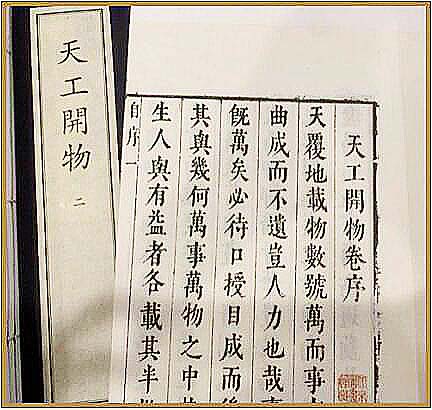 天工開物 二
天工開物卷序
天覆地載物數號萬而事
曲成而不遺豈人力也哉事
既萬矣必待口授目成而後
其與幾何萬事萬物之中
生人與有益者各載其半
序一